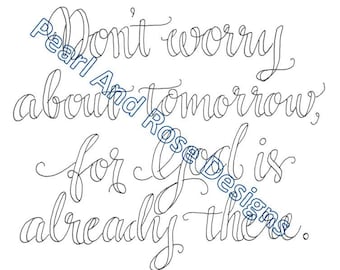 Don't worry
about tomorrow,
for God is
already there.
Pearl And Rose Designs